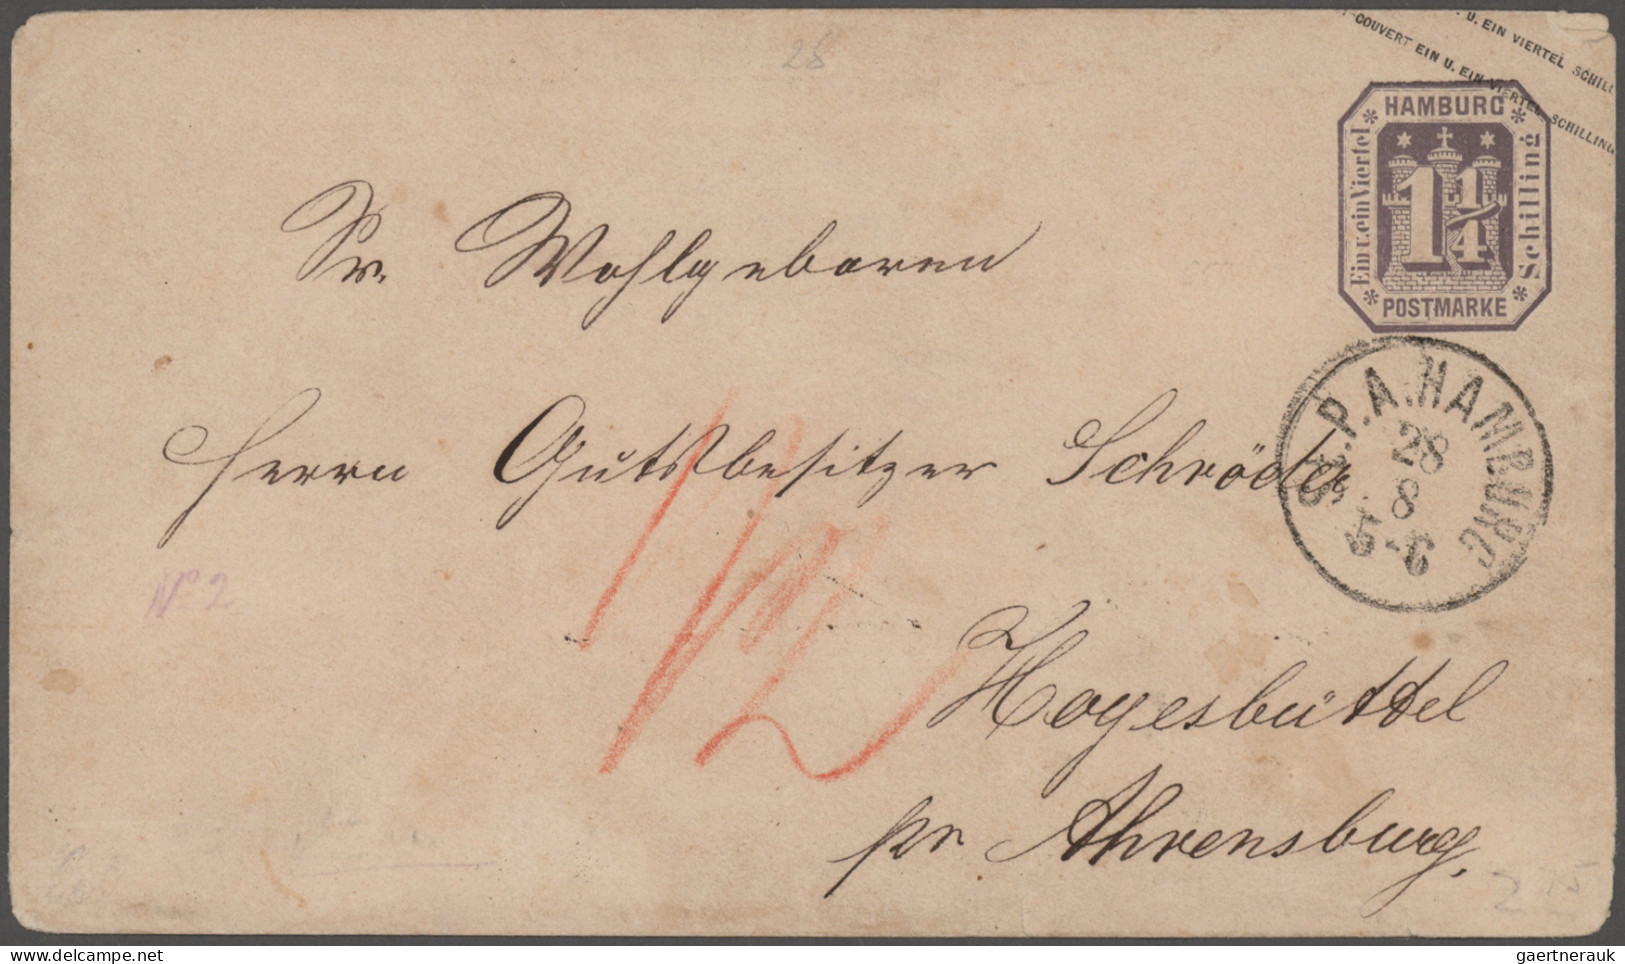 28
U. EIN VIERTEL SCHILL
COUVERT EIN U. EIN VIERTEL SCHILLING
HAMBURG
Ein u. ein Viertel
Schilling
1 1/4
POSTMARKE
ST. P. A. HAMBURG
28
8
5-6
Sr. Wohlgeboren
Herrn Gutsbesitzer Schröder
No 2
1/2
Hoyesbüttel
pr Ahrensburg.
2
gaertnerauk